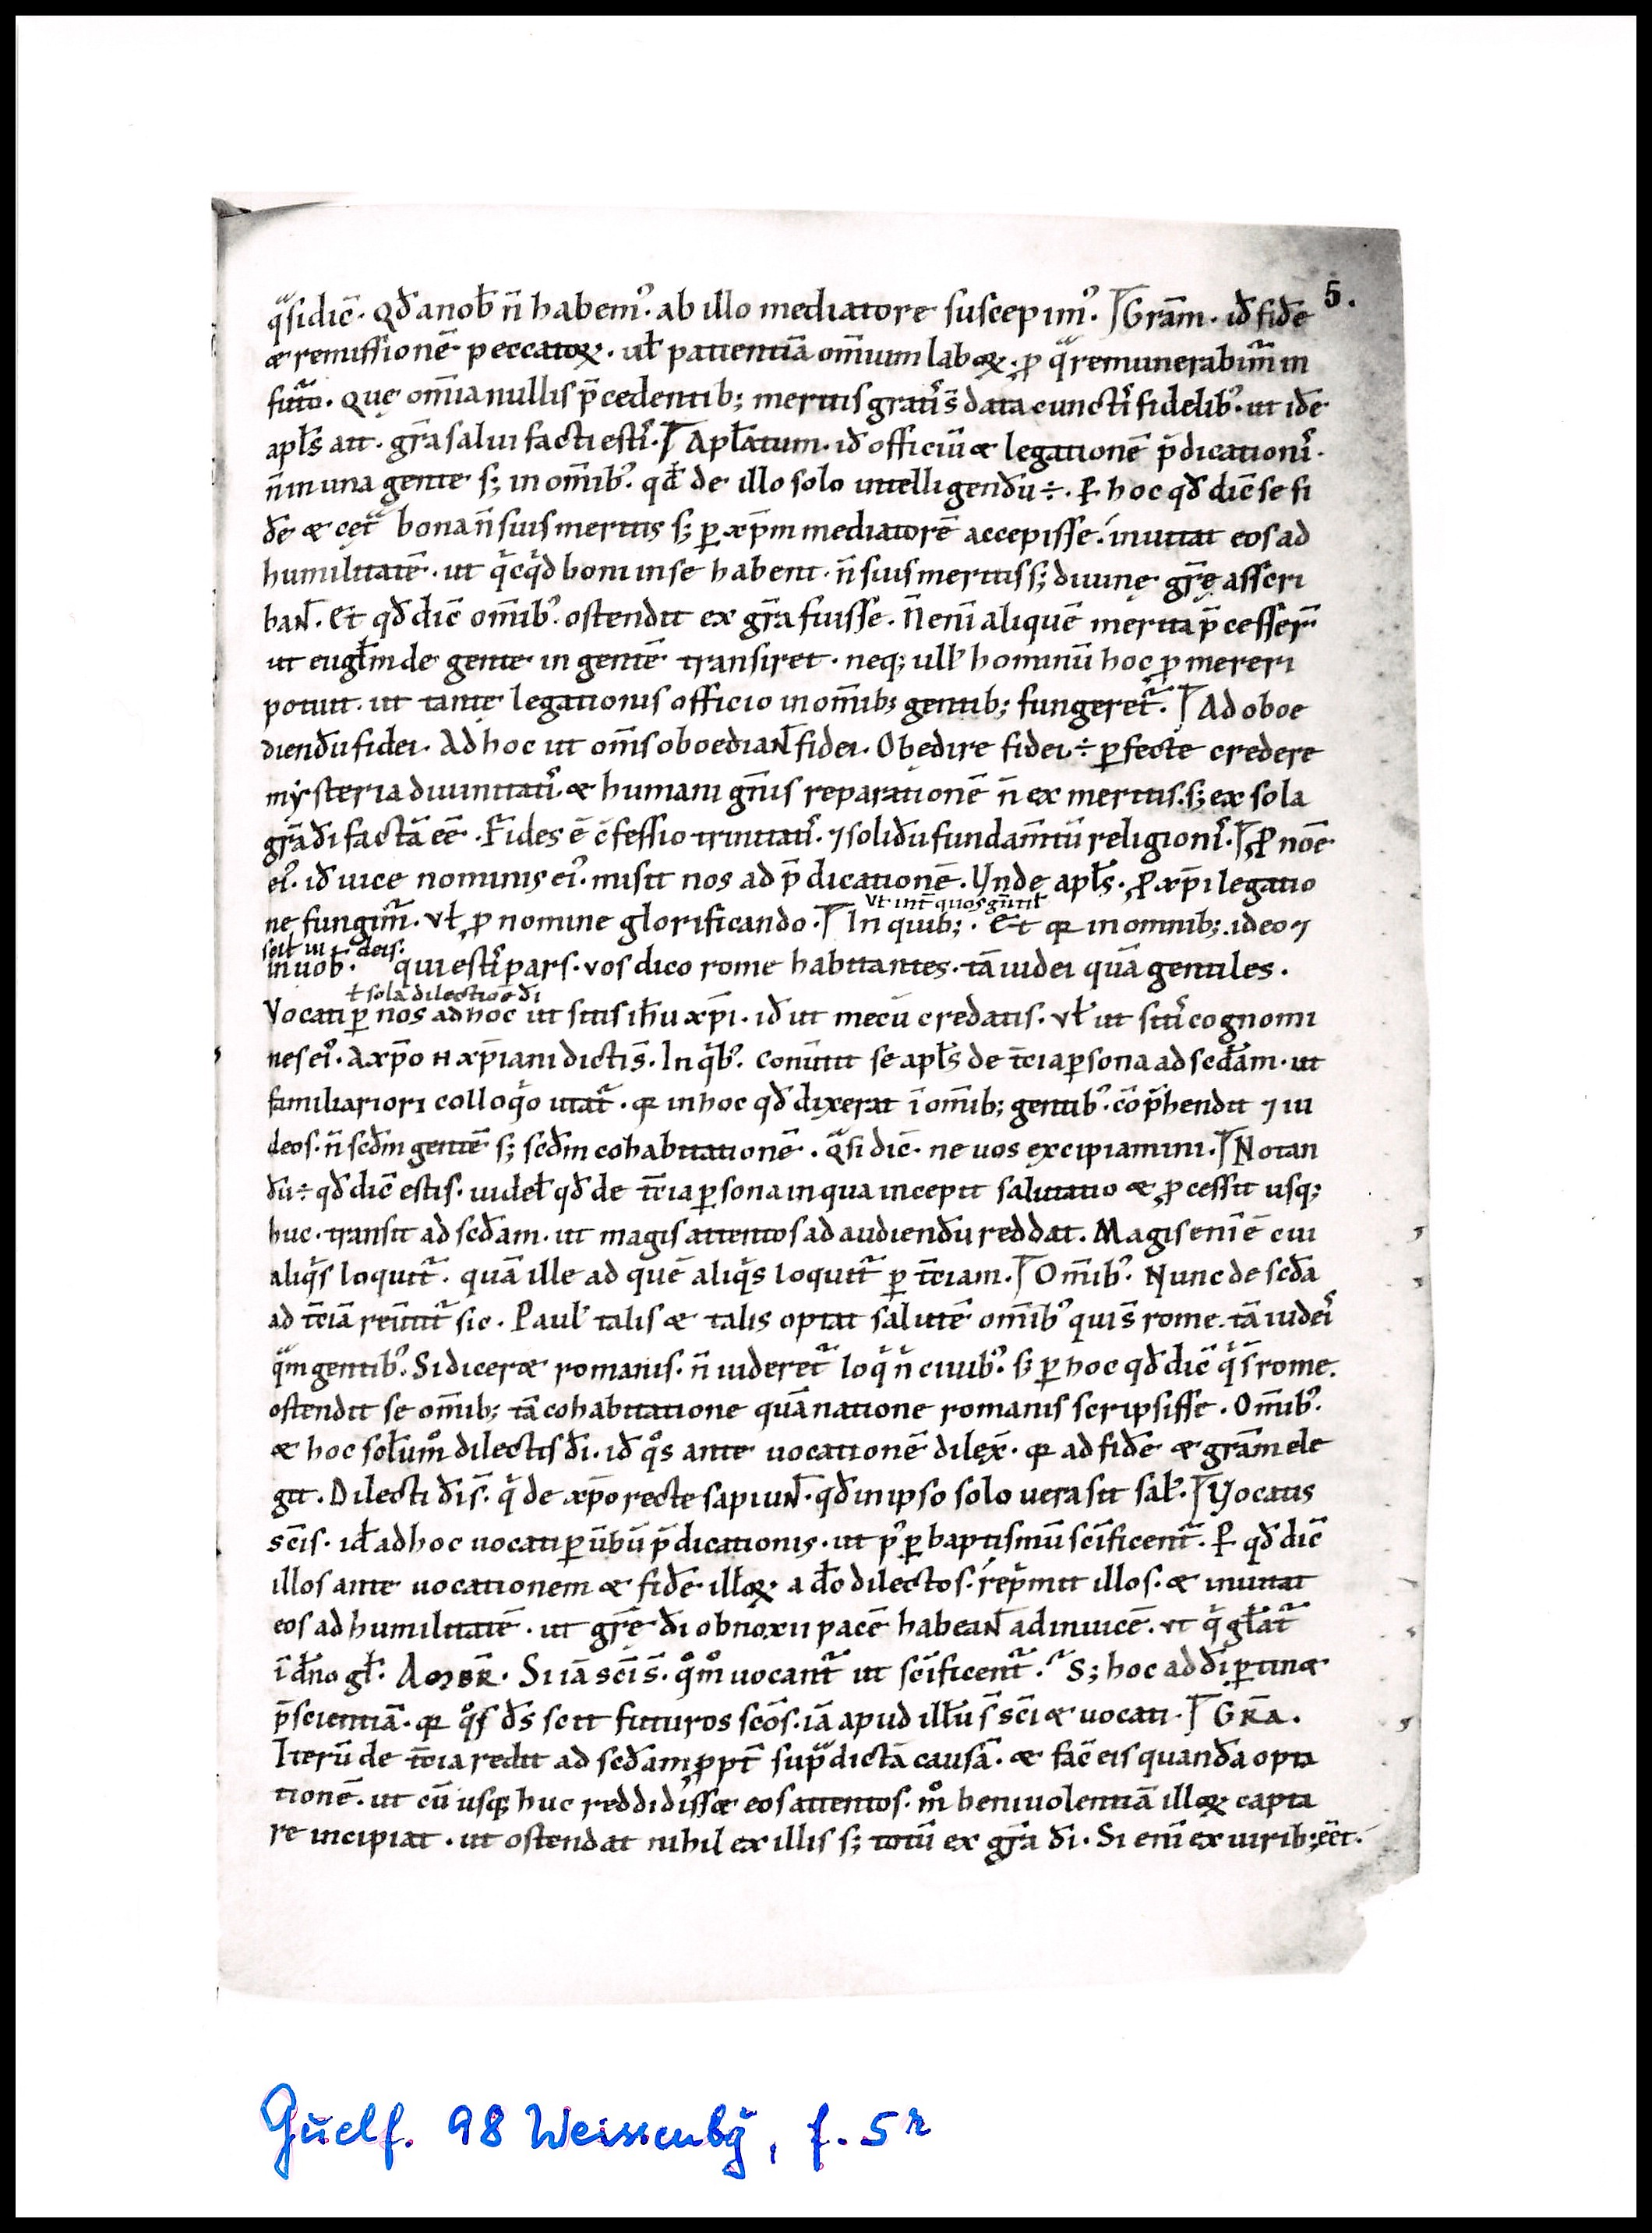 q̄sidic̄. Qđ anob̄ n̄ habem᾽. ab illo mediatore suscepim᾽. Gr̄am. iđ fidē
5.
& remissionē peccatoꝝ. ut̄ patientiā om̄ium laboꝝ. ꝓ q̄ remunerabim̄ in
fut̄o. Quę om̄ia nullis p̄cedentib; meritis grat᾽ s̄ data cunct᾽ fidelib᾽. ut idē
apl̄s ait. gr̄a salui facti est᾽. Apl̄atum. iđ officiū & legationē p̄dication᾽.
n̄ in una gente s; in om̄ib᾽. qđ de illo solo intelligendū ÷. ꝑ hoc qđ dic̄ se fi
dē & cęt̄ bona n̄ suis meritis s; ꝑ xp̄m mediatorē accepisse. inuitat eos ad
humilitatē. ut q̄cq̄d boni in se habent. n̄ suis meritis s; diuinę gr̄ę asscri
ban̄. Et qđ dic̄ om̄ib᾽. ostendit ex gr̄a fuisse. N̄ eni᷎ aliquē merita p̄cesser̄
ut eugl̄m de gente in gentē transiret. neq; ull᾽ hominū hoc ꝓmereri
potuit. ut tantę legationis officio in om̄ib; gentib; fungeret̄. Ad oboe
diendū fidei. Ad hoc ut om̄s oboedian̄ fidei. Obędire fidei ÷ ꝑfecte credere
mẏsteria diuinitat᾽. & humani gn̄is reparationē n̄ ex meritis. s; ex sola
gr̄a đi factā eē. Fides ē c̄fessio trinitat᾽. ⁊ solidū fundam̄tū religion᾽. Ꝓ noē
ei᾽. iđ uice nominis ei᾽. misit nos ad p̄dicationē. Vnde apl̄s. ꝓ xp̄i legatio
ne fungim̄. Vt̄ ꝓ nomine glorificando. In quib;. Et q̄ in omnib;. ideo ⁊
in uob̄. qui est᾽ pars. vos dico rome habitantes. tā iudei quā gentiles.
ł sola dilectiōe đi
Vocati ꝑ nos ad hoc ut sitis ih̄u xp̄i. iđ ut mecū credatis. Vt̄ ut sit᾽ cognomi
nes ei᾽. A xp̄o n̄ xp̄iani dicti s̄. In q̄b᾽. Conūtit se apl̄s de t̄cia ꝑsona ad scđam. ut
familiariori colloq̄o utat̄. q̄ in hoc qđ dixerat ī om̄ib; gentib᾽. cōp̄hendit ⁊ iu
deos. n̄ scđm gentē s; scđm cohabitationē. Q̄si dic̄. ne uos excipiamini. Notan
dū ÷ qđ dic̄ estis. uidel̄ qđ de t̄cia ꝑsona in qua incepit salutatio & ꝓcessit usq;
huc. transit ad scđam. ut magis attentos ad audiendū reddat. Magis eni᷎ ē cui
aliq̄s loquit̄. quā ille ad quē aliq̄s loquit̄ ꝑ t̄ciam. Om̄ib᾽. Nunc de scđa
ad t̄ciā reūtit̄ sic. Paul᾽ talis & talis optat salutē om̄ib᾽ qui s̄ rome. tā iudei᾽
q̄m gentib᾽. Si diceret romanis. n̄ uideret̄ loq̄ n̄ ciuib᾽. s; ꝑ hoc qđ dic̄ q̄ s̄ rome.
ostendit se om̄ib; tā cohabitatione quā natione romanis scripsisse. Om̄ib᾽.
& hoc sol̄ummº dilectis đi. iđ qº̄s ante uocationē dilex̄. q̄ ad fidē & gr̄am ele
git. Dilecti đi s̄. q̄ de xp̄o recte sapiun̄. qđ in ipso solo uera sit sal᾽. Vocatis
sc̄is. iđ ad hoc uocati ꝑ ūbū p̄dicationis. ut p᾽ ꝑ baptismū sc̄ificent̄. ꝑ qđ dic̄
illos ante uocationem & fidē illoꝝ a đo dilectos. rep̄mit illos. & inuitat
eos ad humilitatē. ut gr̄ę đi obnoxii pacē habean̄ adinuicē. ut q̄ gl̄at̄
ī đno gl̄. Ambr̄. Si iā sc̄i s̄. qºmº uocant̄ ut sc̄ificent̄. S; hoc ad đi ꝑtinet
p̄scientiā. q̄ qºs đs scit futuros sc̄os. iā apud illū s̄ sc̄i & uocati. Gr̄a.
Iterū de t̄cia redit ad scđam ꝓpt̄ sup̄dictā causā. & fac̄ eis quandā opta
tionē. ut cū usq; huc reddidisset eos attentos. mº beniuolentiā illoꝝ capta
re incipiat. ut ostendat nihil ex illis s; totū ex gr̄a đi. Si eni᷎ ex uirib; eēt.
Guelf. 98 Weissenbg, f. 5r